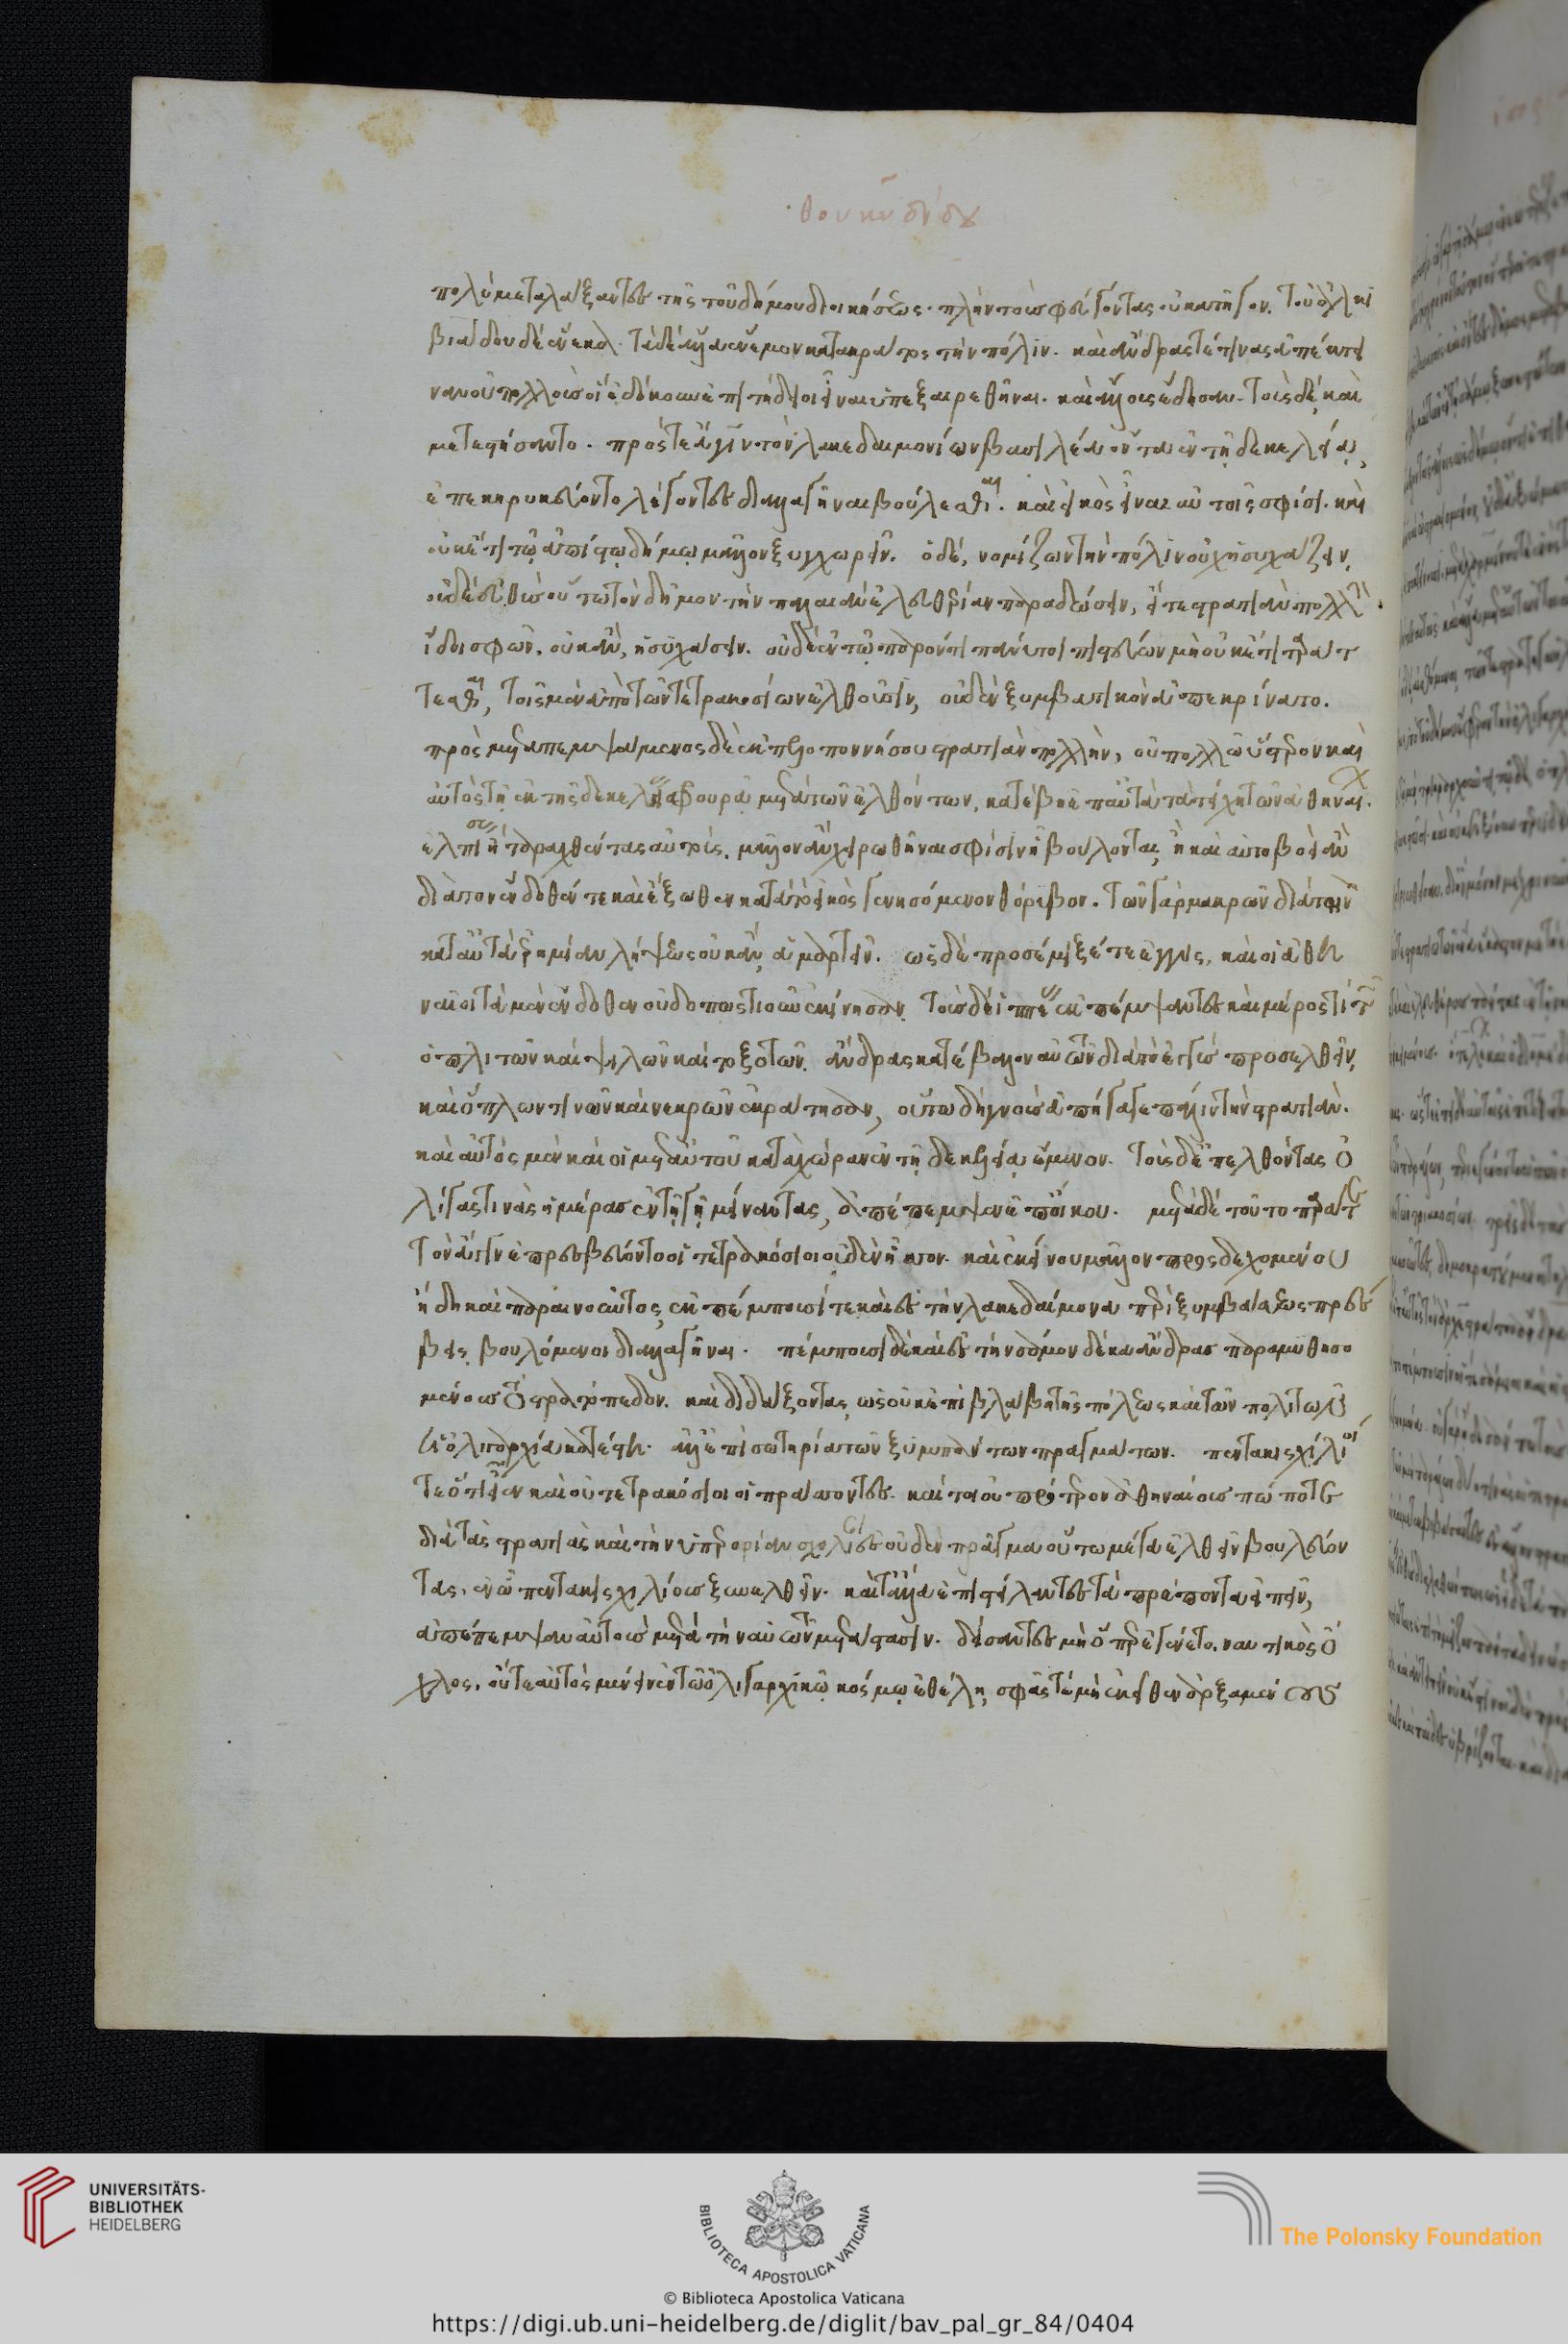 θουκυδίδου
πολὺ μεταλλάξαντες τῆς τοῦ δήμου διοικήσεως. πλὴν τοὺς φεύγοντας οὐ κατῆγον. τοῦ ἀλκι
βιάδου δὲ ἕνεκα. τὰ δὲ ἄλλα ἔνεμον κατὰ κράτος τὴν πόλιν. καὶ ἄνδρας τέ τινας ἀπέκτει
ναν οὐ πολλοὺς οἳ ἐδόκουν ἐπιτήδειοι εἶναι ὑπεξαιρεθῆναι. καὶ ἄλλους ἔδησαν. τοὺς δὲ καὶ
μετεστήσαντο. πρός τε ἆγιν τὸν λακεδαιμονίων βασιλέα ὄντα ἐν τῇ δεκελείᾳ
ἐπεκηρυκεύοντο λέγοντες διαλλαγῆναι βούλεσθαι. καὶ εἰκὸς εἶναι αὐτοῖς σφίσι. καὶ
οὐκέτι τῷ ἀπίστῳ δήμῳ μᾶλλον ξυγχωρεῖν. ὁ δὲ, νομίζων τὴν πόλιν οὐχ ἡσυχάζειν
οὐδ' εὐθὺς οὕτω τὸν δῆμον τὴν παλαιὰν ἐλευθερίαν παραδώσειν, εἴ τε στρατιὰν πολλὴν
ἴδοι σφῶν. οὐκ ἂν, ἡσυχάσειν. οὐδ' ἐν τῷ παρόντι πάνυ τι πιστεύων μὴ οὐκέτι ταράτ
τεσθαι, τοῖς μὲν ἀπὸ τῶν τετρακοσίων ἐλθοῦσιν, οὐδὲν ξυμβατικὸν ἀπεκρίνατο.
προσμεταπεμψάμενος δὲ ἐκ πελοποννήσου στρατιὰν πολλὴν, οὐ πολλῷ ὕστερον καὶ
αὐτὸς τῇ ἐκ τῆς δεκελείας φρουρᾷ μετὰ τῶν ἐλθόντων, κατέβη ἐπ' αὐτὰ τὰ τείχη τῶν ἀθηναίων.
ἐλπίσας ἢ ταραχθέντας αὐτοὺς. μᾶλλον ἂν χειρωθῆναι σφίσιν ᾗ βούλονται, ἢ καὶ αὐτοβοεὶ ἂν
διὰ τὸν ἔνδοθέν τε καὶ ἔξωθεν κατὰ τὸ εἰκὸς γενησόμενον θόρυβον. τῶν γὰρ μακρῶν διὰ τὴν
κατ' αὐτὰ ἐρημίαν λήψεως οὐκ ἂν ἁμαρτεῖν. ὡς δὲ προσέμιξέ τε ἐγγὺς, καὶ οἱ ἀθη
ναῖοι τὰ μὲν ἔνδοθεν οὐδ' ὁπωστιοῦν ἐκίνησαν. τοὺς δὲ ἱππέας ἐκπέμψαντες καὶ μέρος τι τῶν
ὁπλιτῶν καὶ ψιλῶν καὶ τοξοτῶν. ἄνδρας κατέβαλον αὐτῶν διὰ τὸ ἐγγὺς προσελθεῖν,
καὶ ὅπλων τινῶν καὶ νεκρῶν ἐκράτησαν, οὕτω δὴ γνοὺς ἀπήγαγε πάλιν τὴν στρατιάν.
καὶ αὐτὸς μὲν καὶ οἱ μετ' αὐτοῦ κατὰ χώραν ἐν τῇ δεκελείᾳ ἔμενον. τοὺς δ' ἐπελθόντας ὀ
λίγας τινὰς ἡμέρας ἐν τῇ γῇ μείναντας, ἀπέπεμψεν ἐπ' οἴκου. μετὰ δὲ τοῦτο παρά τε
τὸν ἆγιν ἐπρεσβεύοντο οἱ τετρακόσιοι οὐδὲν ἧττον. καὶ ἐκείνου μᾶλλον προσδεχομένου
ἤδη καὶ παραινοῦντος, ἐκπέμπουσί τε καὶ ἐς τὴν λακεδαίμονα περὶ ξυμβάσεως πρέσ
βεις βουλόμενοι διαλλαγῆναι. πέμπουσι δὲ καὶ ἐς τὴν σάμον δέκα ἄνδρας παραμυθησο
μένους τὸ στρατόπεδον. καὶ διδάξοντας ὡς οὐκ ἐπὶ βλάβῃ τῆς πόλεως καὶ τῶν πολιτῶν
ἡ ὀλιγαρχία κατέστη. ἀλλ' ἐπὶ σωτηρίᾳ τῶν ξυμπάντων πραγμάτων. πεντακισχίλιοί
τε ὅτι εἶεν καὶ οὐ τετρακόσιοι οἱ πράσσοντες. καίτοι οὐ πρότερον ἀθηναίους πώποτε
διὰ τὰς στρατιὰς καὶ τὴν ὑπερορίαν ἀσχολίαν ἐς οὐδὲν πρᾶγμα οὕτω μέγα ἐλθεῖν βουλεύσον
τας, ἐν ᾧ πεντακισχιλίους ξυνελθεῖν. καὶ τἄλλα ἐπιστείλαντες τὰ πρέποντα εἰπεῖν,
ἀπέπεμψαν αὐτοὺς μετὰ τὴν ἑαυτῶν μετάστασιν. δείσαντες μὴ ὅπερ ἐγένετο. ναυτικὸς ὄ
χλος, οὔτε αὐτὸς μένειν ἐν τῷ ὀλιγαρχικῷ κόσμῳ ἐθέλῃ, σφᾶς τε μὴ ἐκεῖθεν ἀρξαμένου
UNIVERSITÄTS-
BIBLIOTHEK
HEIDELBERG
BIBLIOTECA APOSTOLICA VATICANA
The Polonsky Foundation
© Biblioteca Apostolica Vaticana
https://digi.ub.uni-heidelberg.de/diglit/bav_pal_gr_84/0404